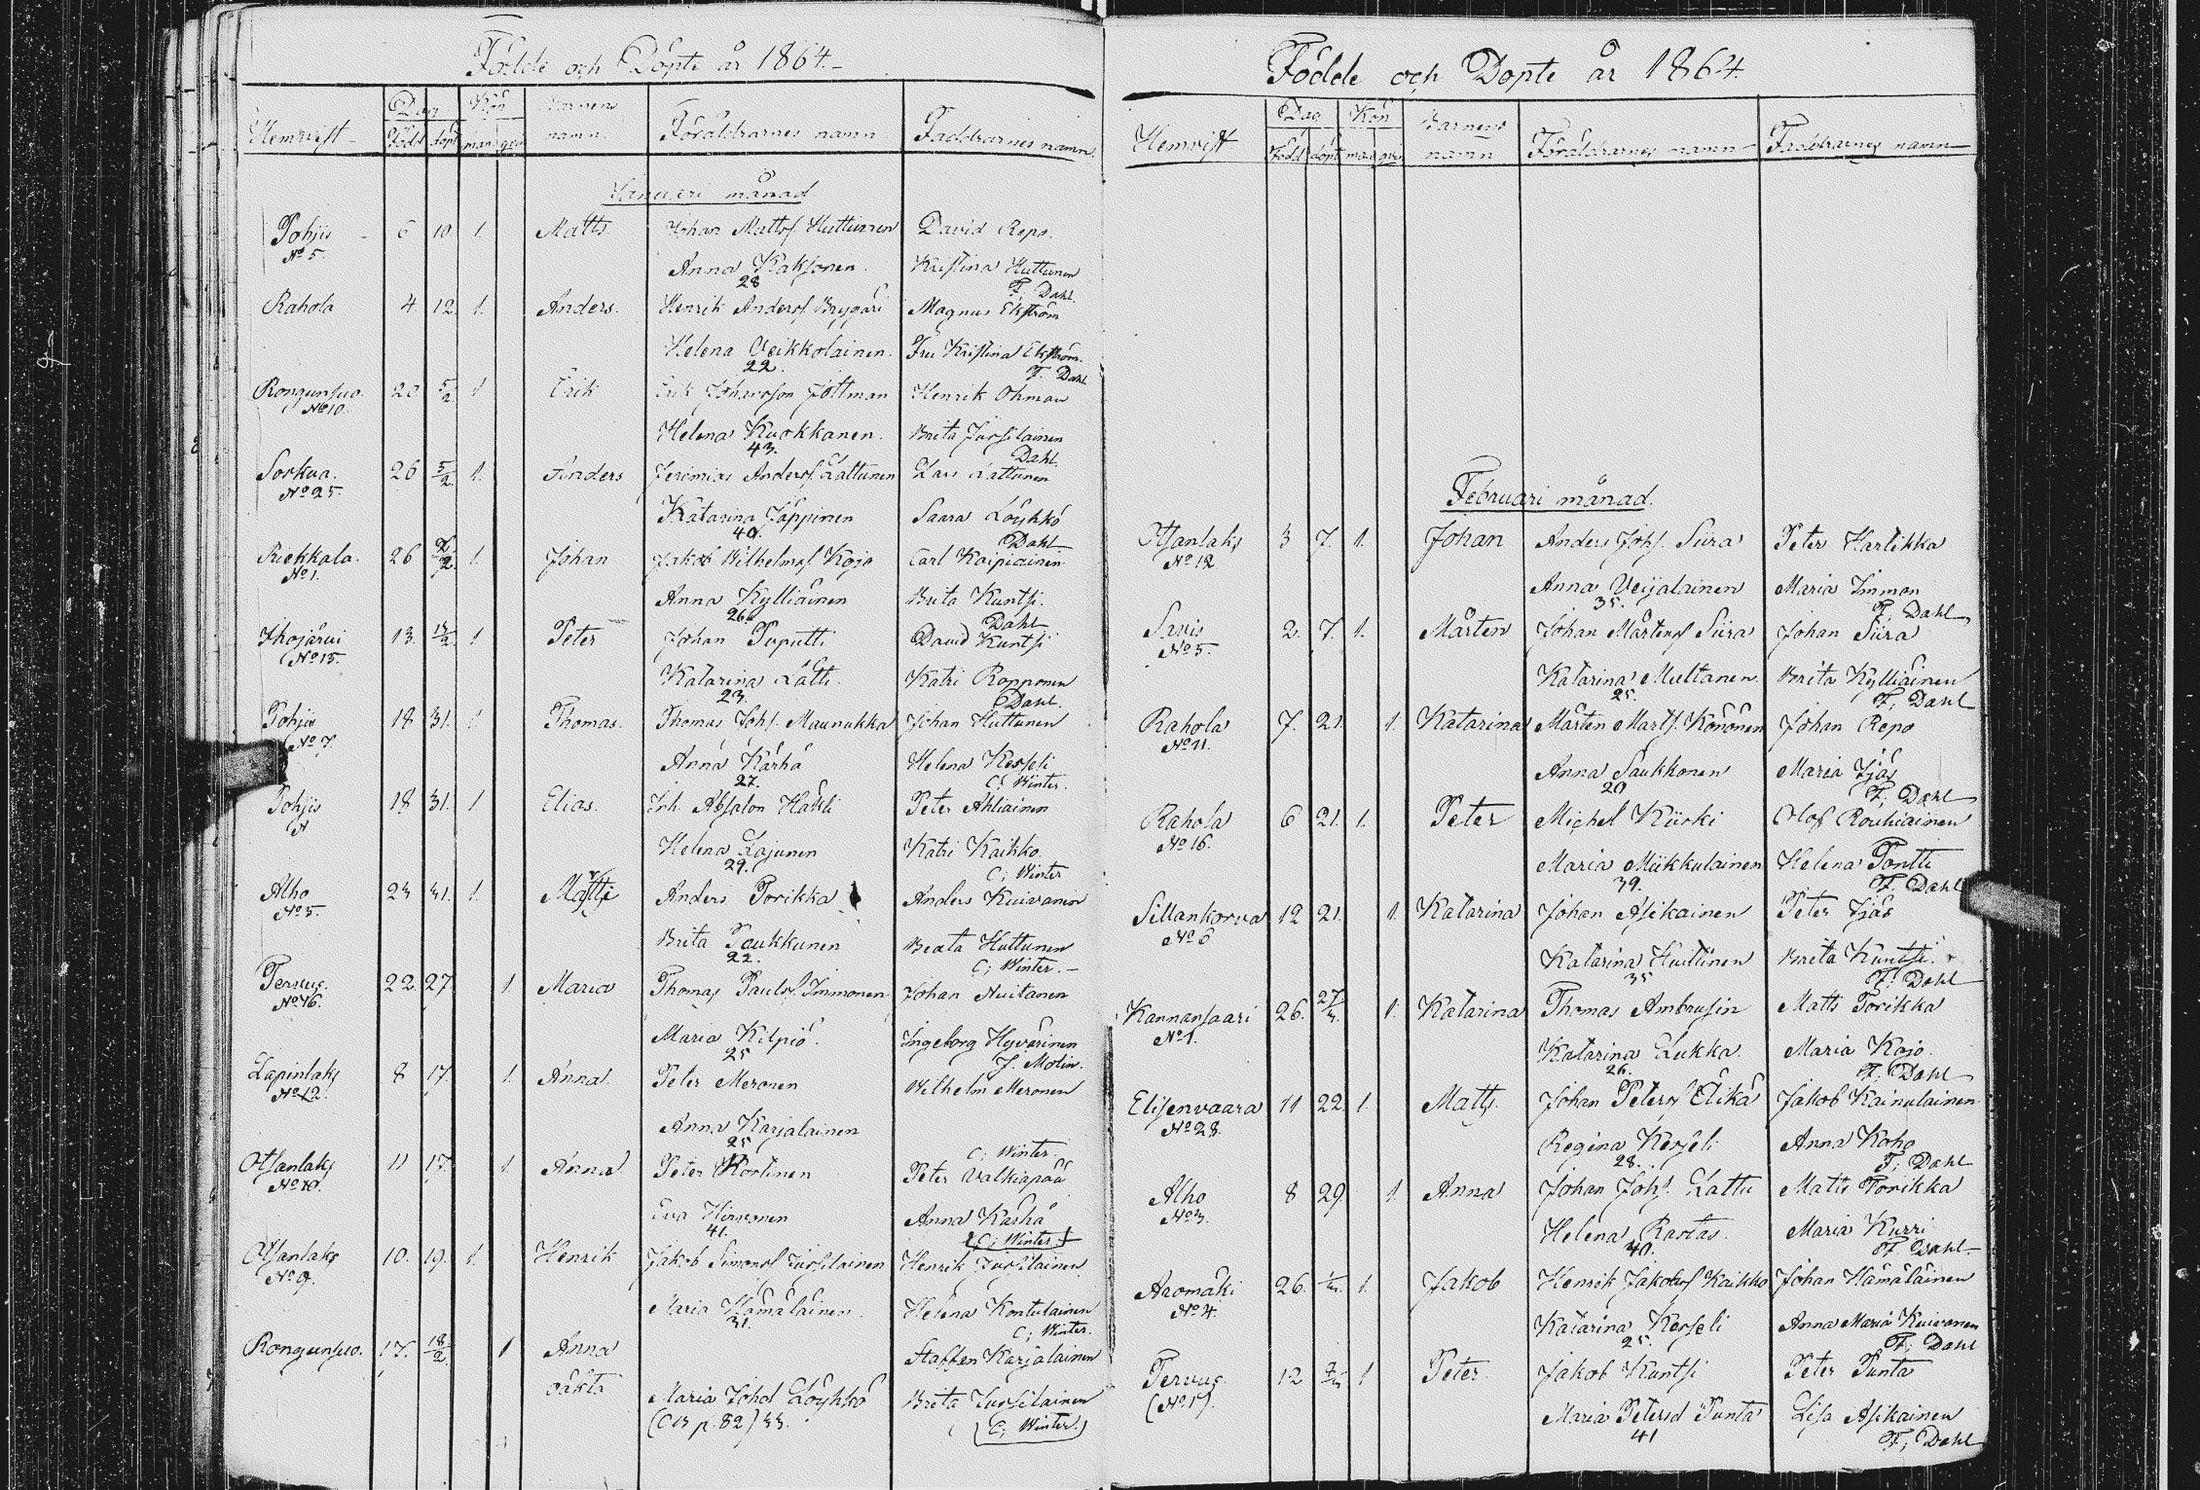 Födde och Döpte år 1864.
Hemvist
Dag
Kön
Barnens
namn
Föräldrarnes namn
Faddrarnes namn
Född döpt man qvin
Januari månad
Pohjis 6 10 1. Matts Johan Matts. Huttunen David Repo.
No 5. Anna Kaksonen. Kristina Huttunen
28 F. Dahl.
Rahola 4 12 1. Anders. Henrik Anders. Magnus Ekström
Helena Veikkolainen. Fru Kristina Ekström.
22. F. Dahl
Rongunsuo. 20 5/2 1 Erik Erik Johansson Jöttman Henrik Öhman
No 10. Helena Kuokkanen. Brita Jussilainen
43. Dahl.
Sorkua. 26 5/2 1. Anders Jeremias Anders. Lattunen Lars Lattunen
No 25. Katarina Jäppinen Saara Löyhkö
40. Dahl
Riekkala. 26 1. Johan Jakob Wilhelms. Kojo Carl Kaipiainen
No 1. Anna Kylliäinen Brita Kuntsi.
26. Dahl
Ihojärvi 13. 1 Peter Johan Puputti David Kuntsi
No 15. Katarina Lätti Katri Ropponen
23. Dahl.
Pohjis 18 31. 1 Thomas. Thomas Johs. Maunukka Johan Huttunen
No 7. Anna Kärhä Helena Kesseli
27. C; Winter.
Pohjis 18 31. 1 Elias. Joh. Absalon Peter Ahtiainen
N Helena Lajunen Katri Kaikko
29. C; Winter
Alho 23 31. 1. Matts Anders Torikka Anders Kuivanen
No 5. Brita Taukkunen Beata Huttunen
22. C; Winter.
Tervus. 22. 27. 1 Maria Thomas Pauls. Immonen Johan Nuitanen
No 46. Maria Kilpiö. Ingeborg Hyvärinen
25 J. Molin.
Lapinlaks 8 17. 1. Anna Peter Meronen Wilhelm Meronen
No 12. Anna Karjalainen
25 C; Winter
Otsanlaks 11 17. 1. Anna Peter Kortinen Peter Valkiapää
No 10. Eva Hirvonen Anna Kärhä
41. C; Winter
Otsanlaks 10. 19. 1. Henrik Jakob Simons. Jussilainen Henrik Jussilainen
No 9. Maria Hämäläinen. Helena Kontulainen
31. C; Winter.
Rongunsuo. 17. 18/2 1 Anna Staffan Karjalainen
oäkta Maria Johsd Löyhkö Brita Jussilainen
(CB p. 82) 33. (C; Winter.)
Födde och Döpte år 1864
Hemvist
Dag
Kön
Barnens
namn
Föräldrarnes namn
Faddrarnes namn
Född döpt man qvin
Februari månad.
Otsanlaks 3 7. 1. Johan Anders Johs. Siira Peter Harlikka
No 12 Anna Veijalainen Maria Immon
35. F; Dahl
Savis 2. 7. 1. Mårten Johan Mårtens. Siira Johan Siira
No 5. Katarina Multanen. Brita Kylliäinen
25. F; Dahl
Rahola 7. 21. 1. Katarina Mårten Mårts. Könönen Johan Repo
No 11. Anna Saukkonen Maria Ijäs
20 F; Dahl
Rahola 6 21. 1. Peter Michel Kiiski Olof Rouhiainen
No 16. Maria Miikkulainen Helena Pontti
39. F. Dahl
Sillankorva 12 21. 1. Katarina Johan Asikainen Peter Ijäs
No 6 Katarina Huttinen Brita Kuntsi.
35 F. Dahl
Kannansaari 26. 1. Katarina Thomas Ambrusin Matts Torikka
No 1. Katarina Lukka. Maria Kojo
26. F; Dahl
Elisenvaara 11 22. 1. Matts. Johan Peters. Elikä Jakob Kainulainen
No 28. Regina Kesseli Anna Koho
28. F; Dahl
Alho 8 29 1. Anna Johan Johs. Lattu Matts Torikka
No 3. Helena Rastas. Maria Kurri
40. F. Dahl.
Aromäki 26. 1. Jakob Henrik Jakobs. Kaikko Johan Hämäläinen
No 4. Katarina Kesseli Anna Maria Kuivanen
25. F; Dahl
Tervus. 12 1 Peter. Jakob Kuntsi Peter Punta
(No 1). Maria Petersd Punta Lisa Asikainen
41 F; Dahl